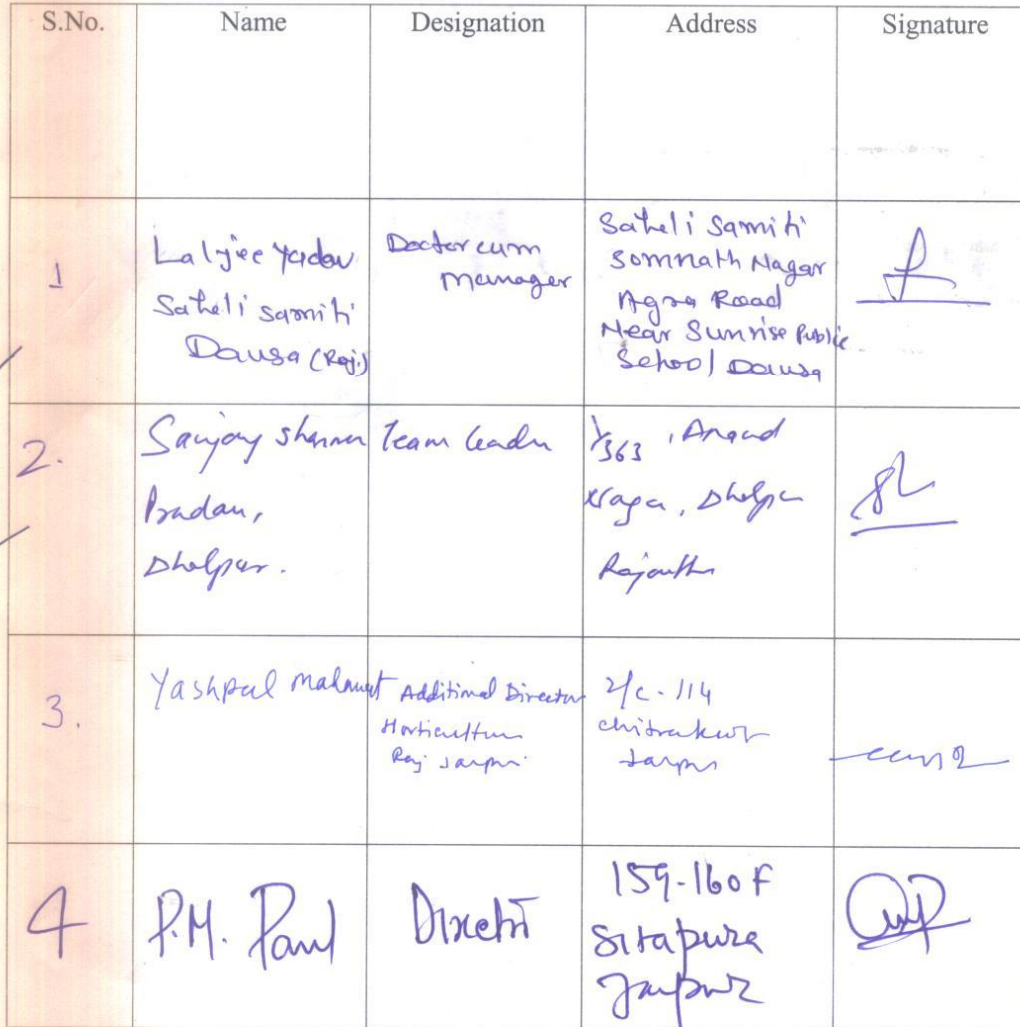 S.No. Name Designation Address Signature
1
Laljee Yadav
Saheli Samiti
Dausa (Raj.)
Doctor cum
Manager
Saheli Samiti
Somnath Nagar
Agra Road
Near Sunrise Public
School Dausa
2.
Sanjay Sharma
Pradan,
Dholpur.
Team Leader
1/363, Anand
Nagar, Dholpur
Rajasthan
3.
Yashpal Mahawat
Additional Director
Horticulture
Raj Jaipur
2/c-114
Chitrakut
Jaipur
4
P.M. Paul
Director
159-160 F
Sitapura
Jaipur